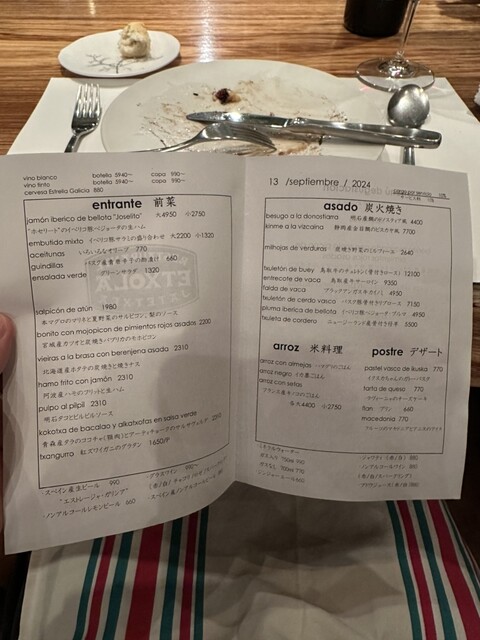 vino blanco botella 5940～ copa 990～
vino tinto botella 5940～ copa 990～
cerveza Estrella Galicia 880
entrante 前菜
jamón iberico de bellota "Joselito" 大4950 小2750
"ホセリート"のイベリコ豚ベジョータの生ハム
embutido mixto イベリコ豚サラミの盛り合わせ 大2200 小1320
aceitunas いろいろなオリーブ 770
guindillas バスク産青唐辛子の酢漬け 660
ensalada verde グリーンサラダ 1320
salpicón de atún 1980
本マグロのマリネと夏野菜のサルピコン、梨のソース
bonito con mojopicon de pimientos rojos asados 2200
宮城産カツオと炭焼きパプリカのモホピコン
vieiras a la brasa con berenjena asada 2310
北海道産ホタテの炭焼きと焼きナス
hamo frito con jamón 2310
阿波産ハモのフリットと生ハム
pulpo al pilpil 2310
明石タコとピルピルソース
kokotxa de bacalao y alkatxofas en salsa verde
青森産タラのココチャ(顎肉)とアーティチョークのサルサヴェルデ 2310
txangurro 紅ズワイガニのグラタン 1650/P
・スペイン産生ビール 990
"エストレージャ・ガリシア"
・ノンアルコールレモンビール 660
・グラスワイン 990～
13 /septiembre / 2024
asado 炭火焼き
besugo a la donostiarra 4400
kinme a la vizcaina 静岡産金目鯛のビスカヤ風 7700
milhojas de verduras 炭焼き野菜のミルフィーユ 2640
txuletón de buey 鳥取牛のチュレトン(骨付きロース) 12100
entrecote de vaca 鳥取産牛サーロイン 9350
falda de vaca ブラックアンガスキカバリ 4950
txuletón de cerdo vasco バスク豚骨付きロース 7150
pluma iberica de bellota イベリコ豚ベジョータ プルマ 4950
txuleta de cordero ニュージーランド産骨付き仔羊 5500
arroz 米料理
arroz con almejas ハマグリのごはん
arroz negro イカ墨ごはん
arroz con setas
フランス産キノコのごはん
各大4400 小2750
postre デザート
pastel vasco de Ikuska 770
イクスカちゃんのガトーバスク
tarta de queso 770
flan プリン 660
macedonia 770
・ミネラルウォーター
ガス入り 750ml 990
ガスなし 750ml 770
ジンジャーエール 660
ETXOLA